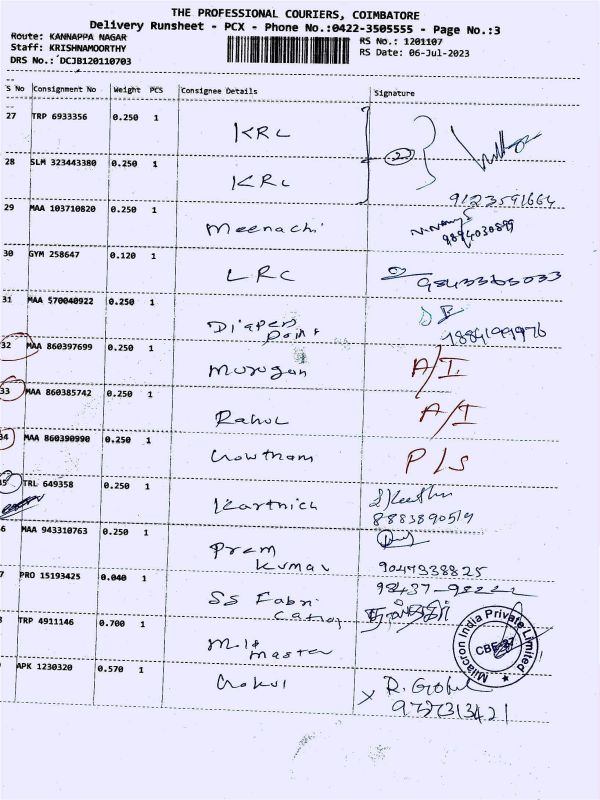 THE PROFESSIONAL COURIERS, COIMBATORE
Delivery Runsheet - PCX - Phone No.:0422-3505555 - Page No.:3
Route: KANNAPPA NAGAR
RS No.: 1201107
Staff: KRISHNAMOORTHY
RS Date: 06-Jul-2023
DRS No.: DCJB120110703
S No Consignment No Weight PCS Consignee Details Signature
27 TRP 6933356 0.250 1 KRC
28 SLM 323443380 0.250 1 KRC
9123591664
29 MAA 103710820 0.250 1 Meenachi
9894030899
30 GYM 258647 0.120 1 LRC
31 MAA 570040922 0.250 1 Diapers
Point 9884199976
32 MAA 860397699 0.250 1 Murugan A/I
33 MAA 860385742 0.250 1 Rahul A/I
34 MAA 860390990 0.250 1 Gowtham P/S
35 TRL 649358 0.250 1 Karthick
8883890519
6 MAA 943310763 0.250 1 Prem
Kumar 9044938825
7 PRO 15193425 0.040 1 SS Fabri
TRP 4911146 0.700 1
Master
Milacron India Private Limited
CBE-37
APK 1230320 0.570 1 Gokul R. Gokul
9727313421